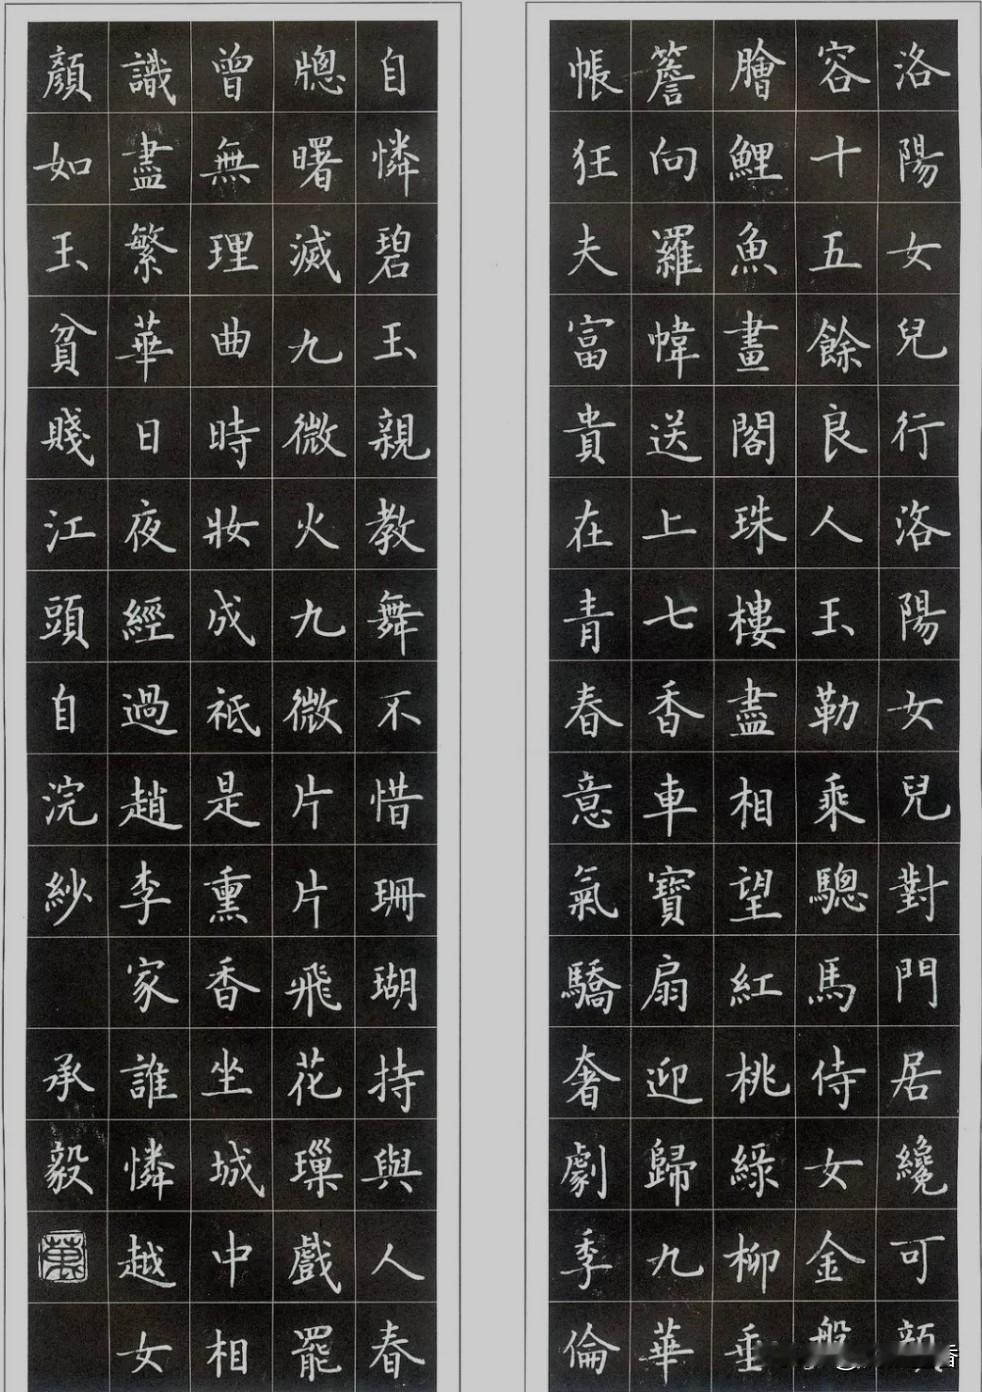 洛陽女兒行洛陽女兒對門居纔可顏
容十五餘良人玉勒乘驄馬侍女金
膾鯉魚畫閣珠樓盡相望紅桃綠柳垂
簷向羅幃送上七香車寶扇迎歸九華
帳狂夫富貴在青春意氣驕奢劇季倫
自憐碧玉親教舞不惜珊瑚持與人春
牕曙滅九微火九微片片飛花璅戲罷
曾無理曲時妝成祗是熏香坐城中相
識盡繁華日夜經過趙李家誰憐越女
顏如玉貧賤江頭自浣紗 承毅
萬